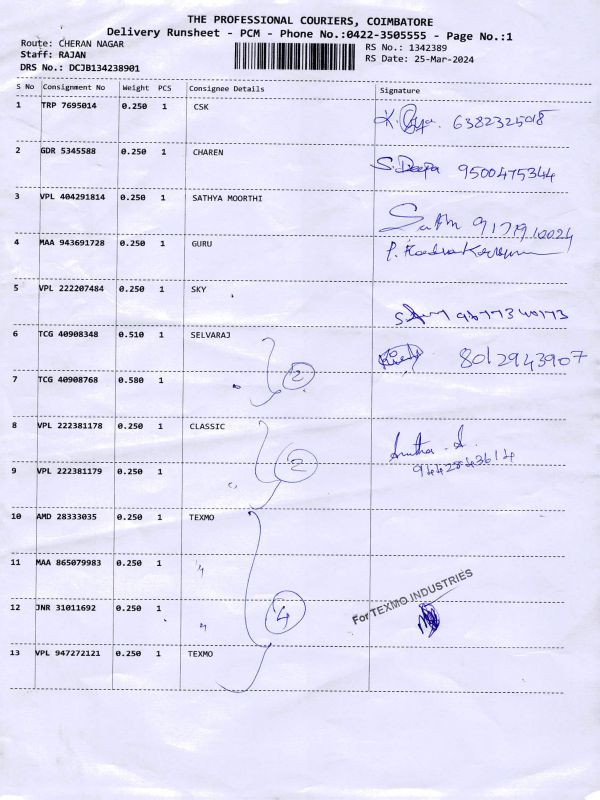 THE PROFESSIONAL COURIERS, COIMBATORE
Delivery Runsheet - PCM - Phone No.:0422-3505555 - Page No.:1
Route: CHERAN NAGAR
Staff: RAJAN
DRS No.: DCJB134238901
RS No.: 1342389
RS Date: 25-Mar-2024
S No Consignment No Weight PCS Consignee Details Signature
1 TRP 7695014 0.250 1 CSK 6382325018
2 GDR 5345588 0.250 1 CHAREN S. Deepa 9500475344
3 VPL 404291814 0.250 1 SATHYA MOORTHI
4 MAA 943691728 0.250 1 GURU
5 VPL 222207484 0.250 1 SKY
6 TCG 40908348 0.510 1 SELVARAJ 8012943907
7 TCG 40908768 0.580 1 " 2
8 VPL 222381178 0.250 1 CLASSIC
9 VPL 222381179 0.250 1 " 2
10 AMD 28333035 0.250 1 TEXMO
11 MAA 865079983 0.250 1 "
12 JNR 31011692 0.250 1 " 4 For TEXMO INDUSTRIES
13 VPL 947272121 0.250 1 TEXMO